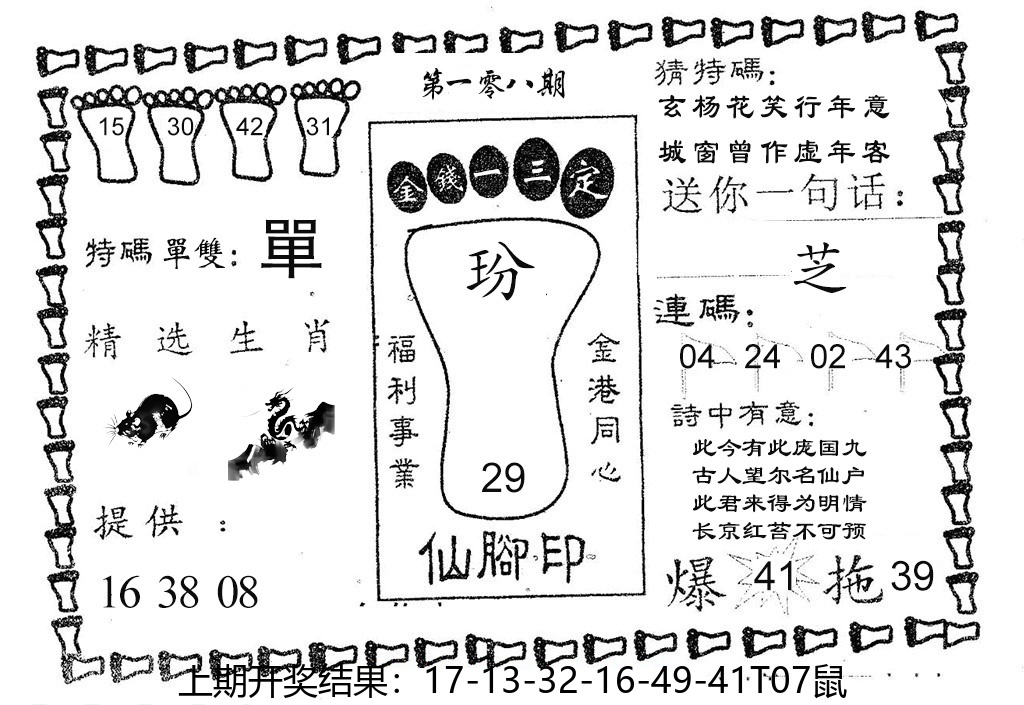 第一零八期
15 30 42 31
特碼單雙: 單
精选生肖
提供:
16 38 08
金錢一三定
玢
福利事業
金港同心
29
仙腳印
猜特碼:
玄杨花笑行年意
城窗曾作虚年客
送你一句话:
芝
連碼:
04 24 02 43
詩中有意:
此今有此庞国九
古人望尔名仙户
此君来得为明情
长京红苔不可预
爆 41 拖 39
上期开奖结果：17-13-32-16-49-41T07鼠